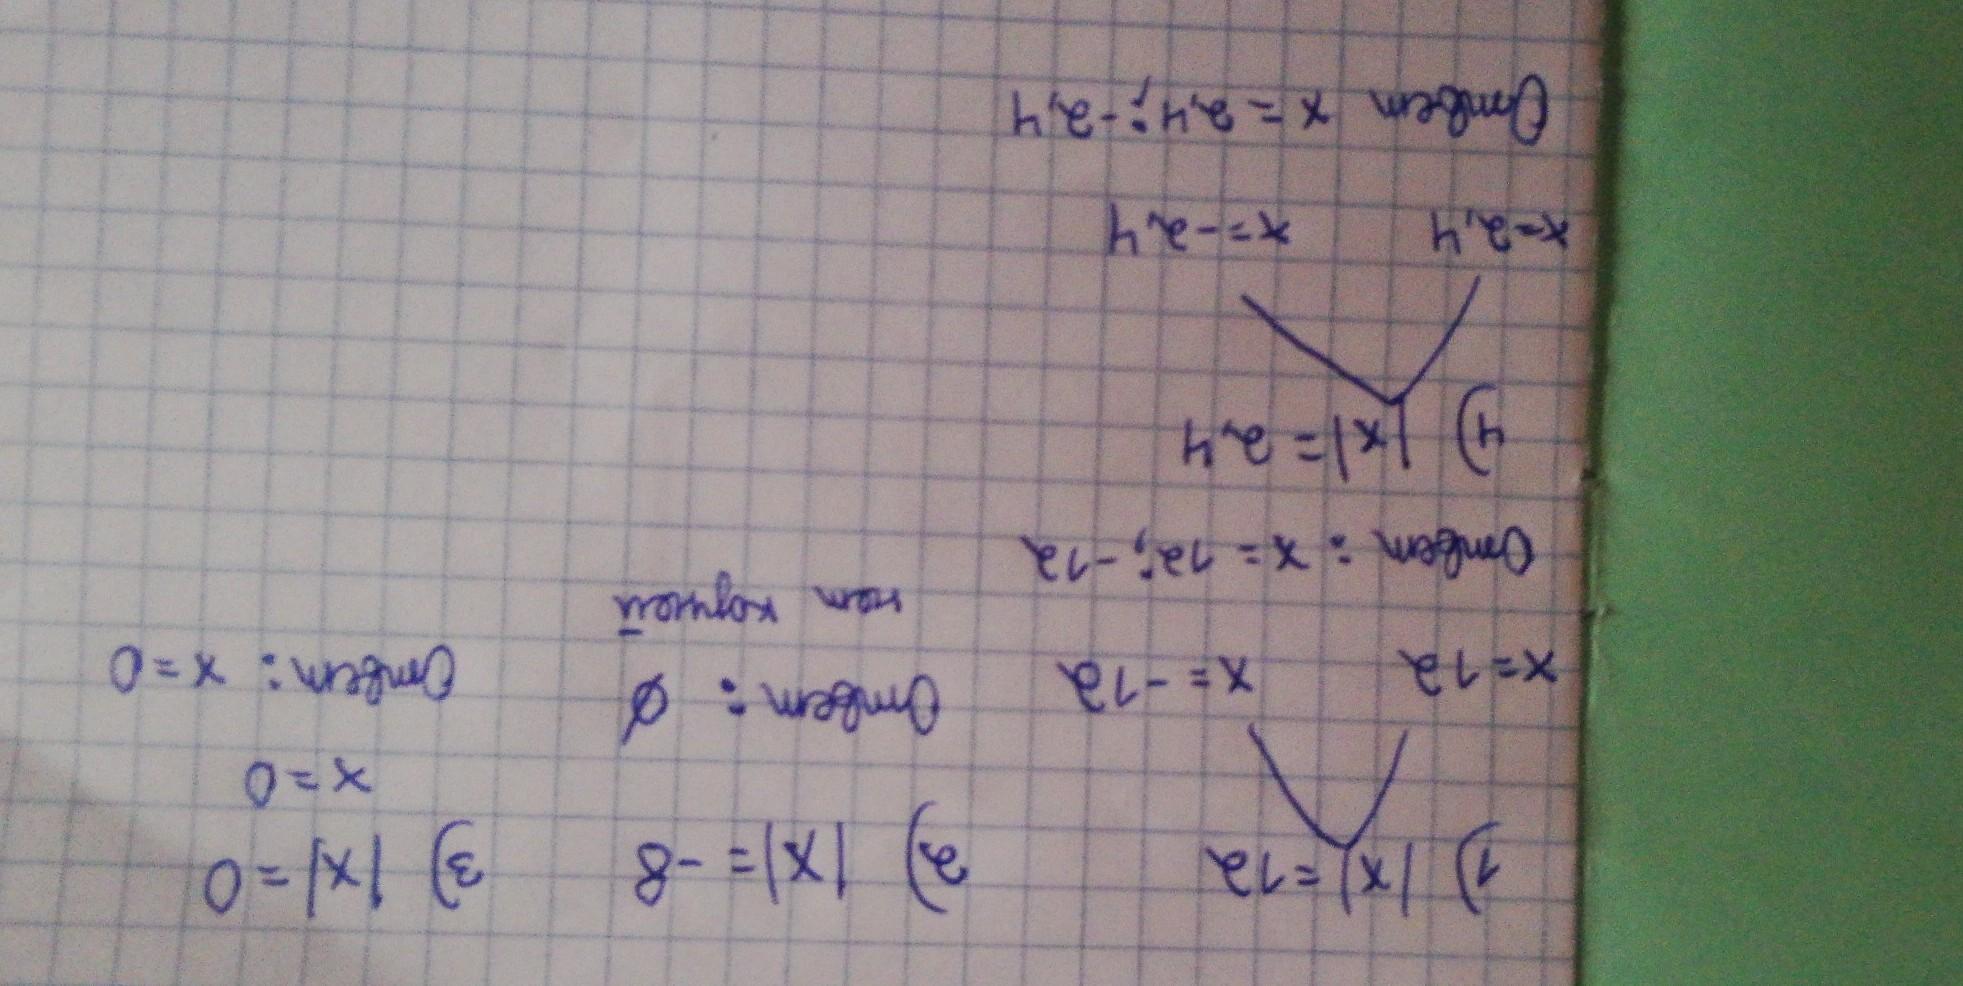 1) |x| = 12
x = 12 x = -12
Ответ: x = 12; -12
2) |x| = -8
Ответ: ∅
нет корней
3) |x| = 0
x = 0
Ответ: x = 0
4) |x| = 2,4
x = 2,4 x = -2,4
Ответ x = 2,4; -2,4